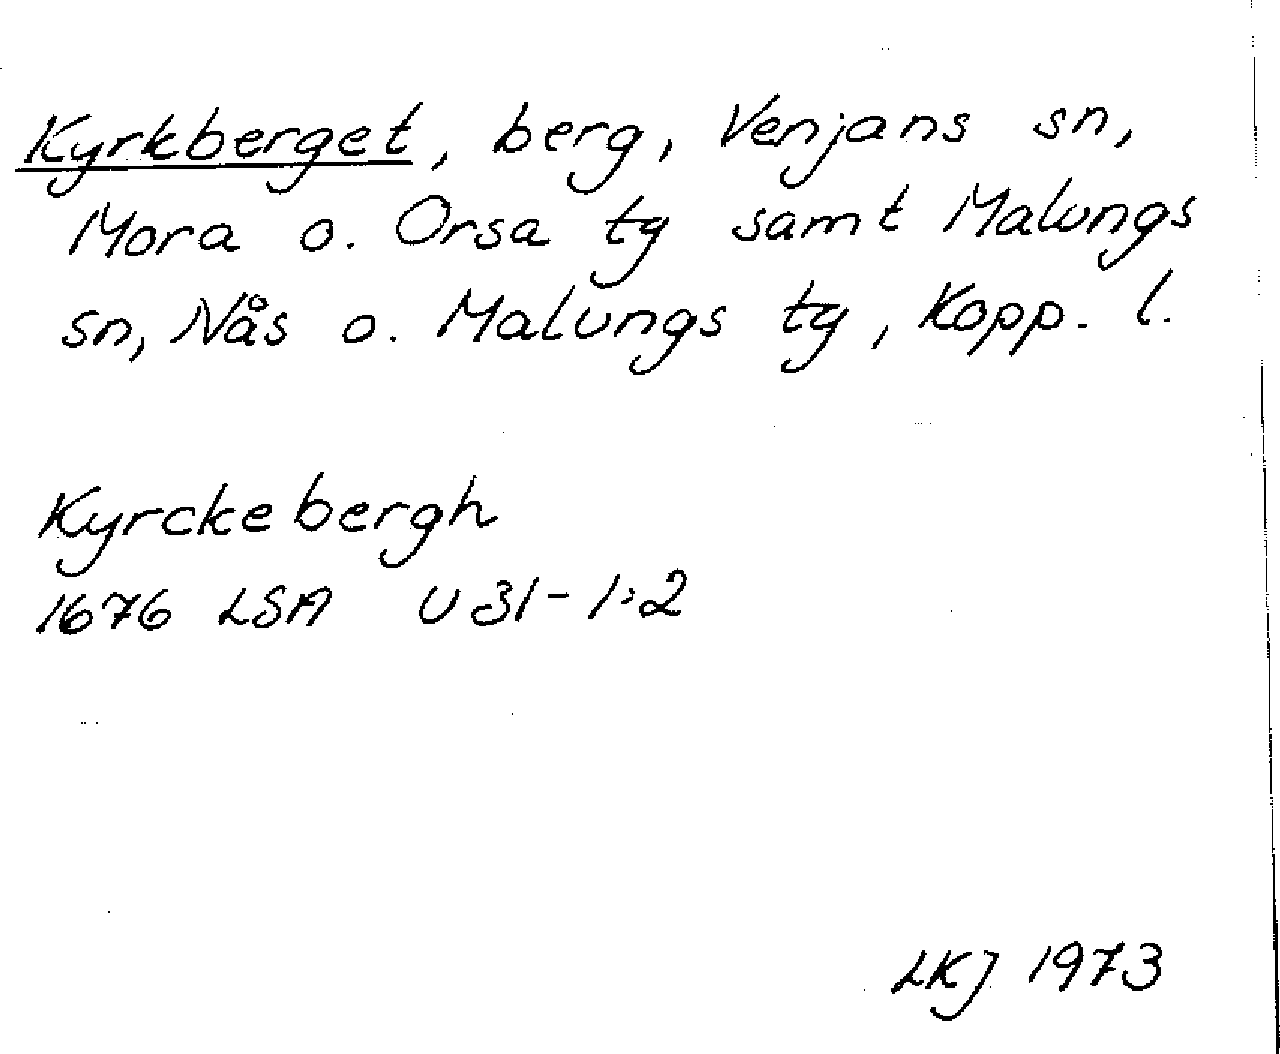 Kyrkberget, berg, Venjans sn,
Mora o. Orsa tg samt Malungs
sn, Nås o. Malungs tg, Kopp. l.
Kyrckebergh
1676 LSA U 31-1:2
LKJ 1973